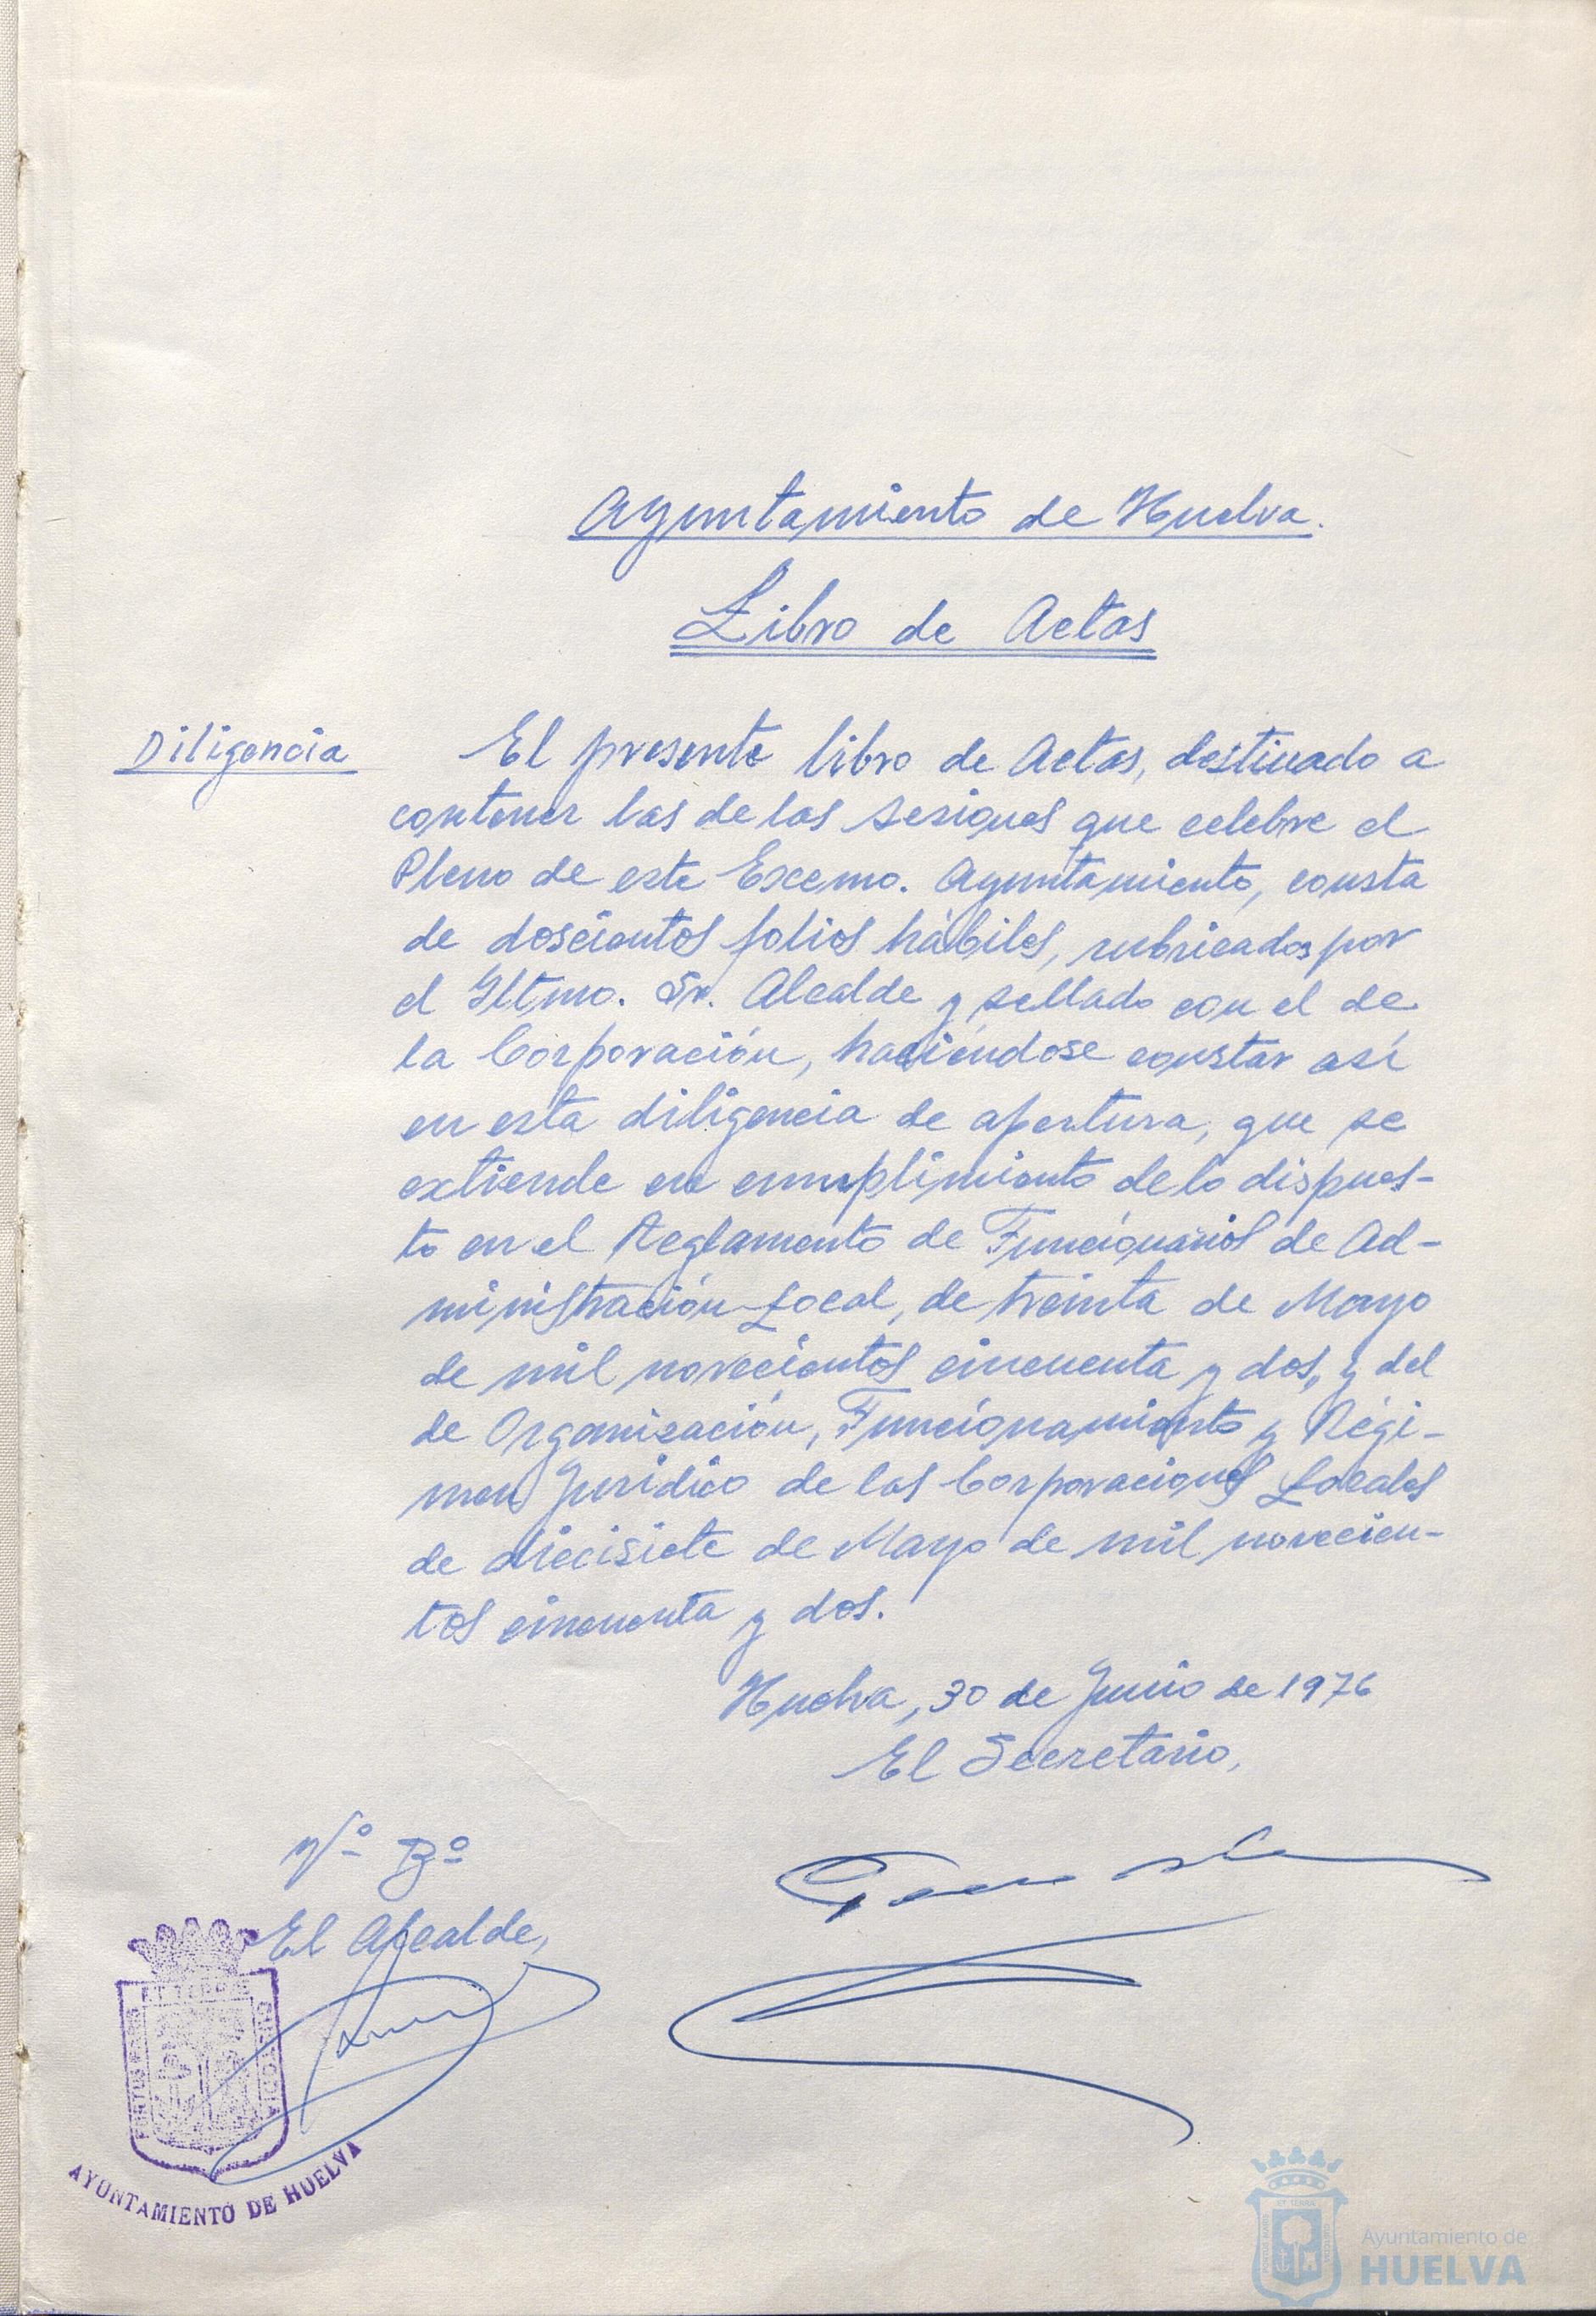 Ayuntamiento de Huelva.
Libro de Actas
Diligencia
El presente libro de Actas, destinado a
contener las de las sesiones que celebre el
Pleno de este Excmo. Ayuntamiento, consta
de doscientos folios hábiles, rubricados por
el Iltmo. Sr. Alcalde y sellado con el de
la Corporación, haciéndose constar así
en esta diligencia de apertura, que se
extiende en cumplimiento de lo dispues-
to en el Reglamento de Funcionarios de Ad-
ministración Local, de treinta de Mayo
de mil novecientos cincuenta y dos, y del
de Organización, Funcionamiento y Régi-
men Jurídico de las Corporaciones Locales
de diecisiete de Mayo de mil novecien-
tos cincuenta y dos.
Huelva, 30 de Junio de 1976
El Secretario,
Vº Bº
El Alcalde,
AYUNTAMIENTO DE HUELVA
Ayuntamiento de
HUELVA